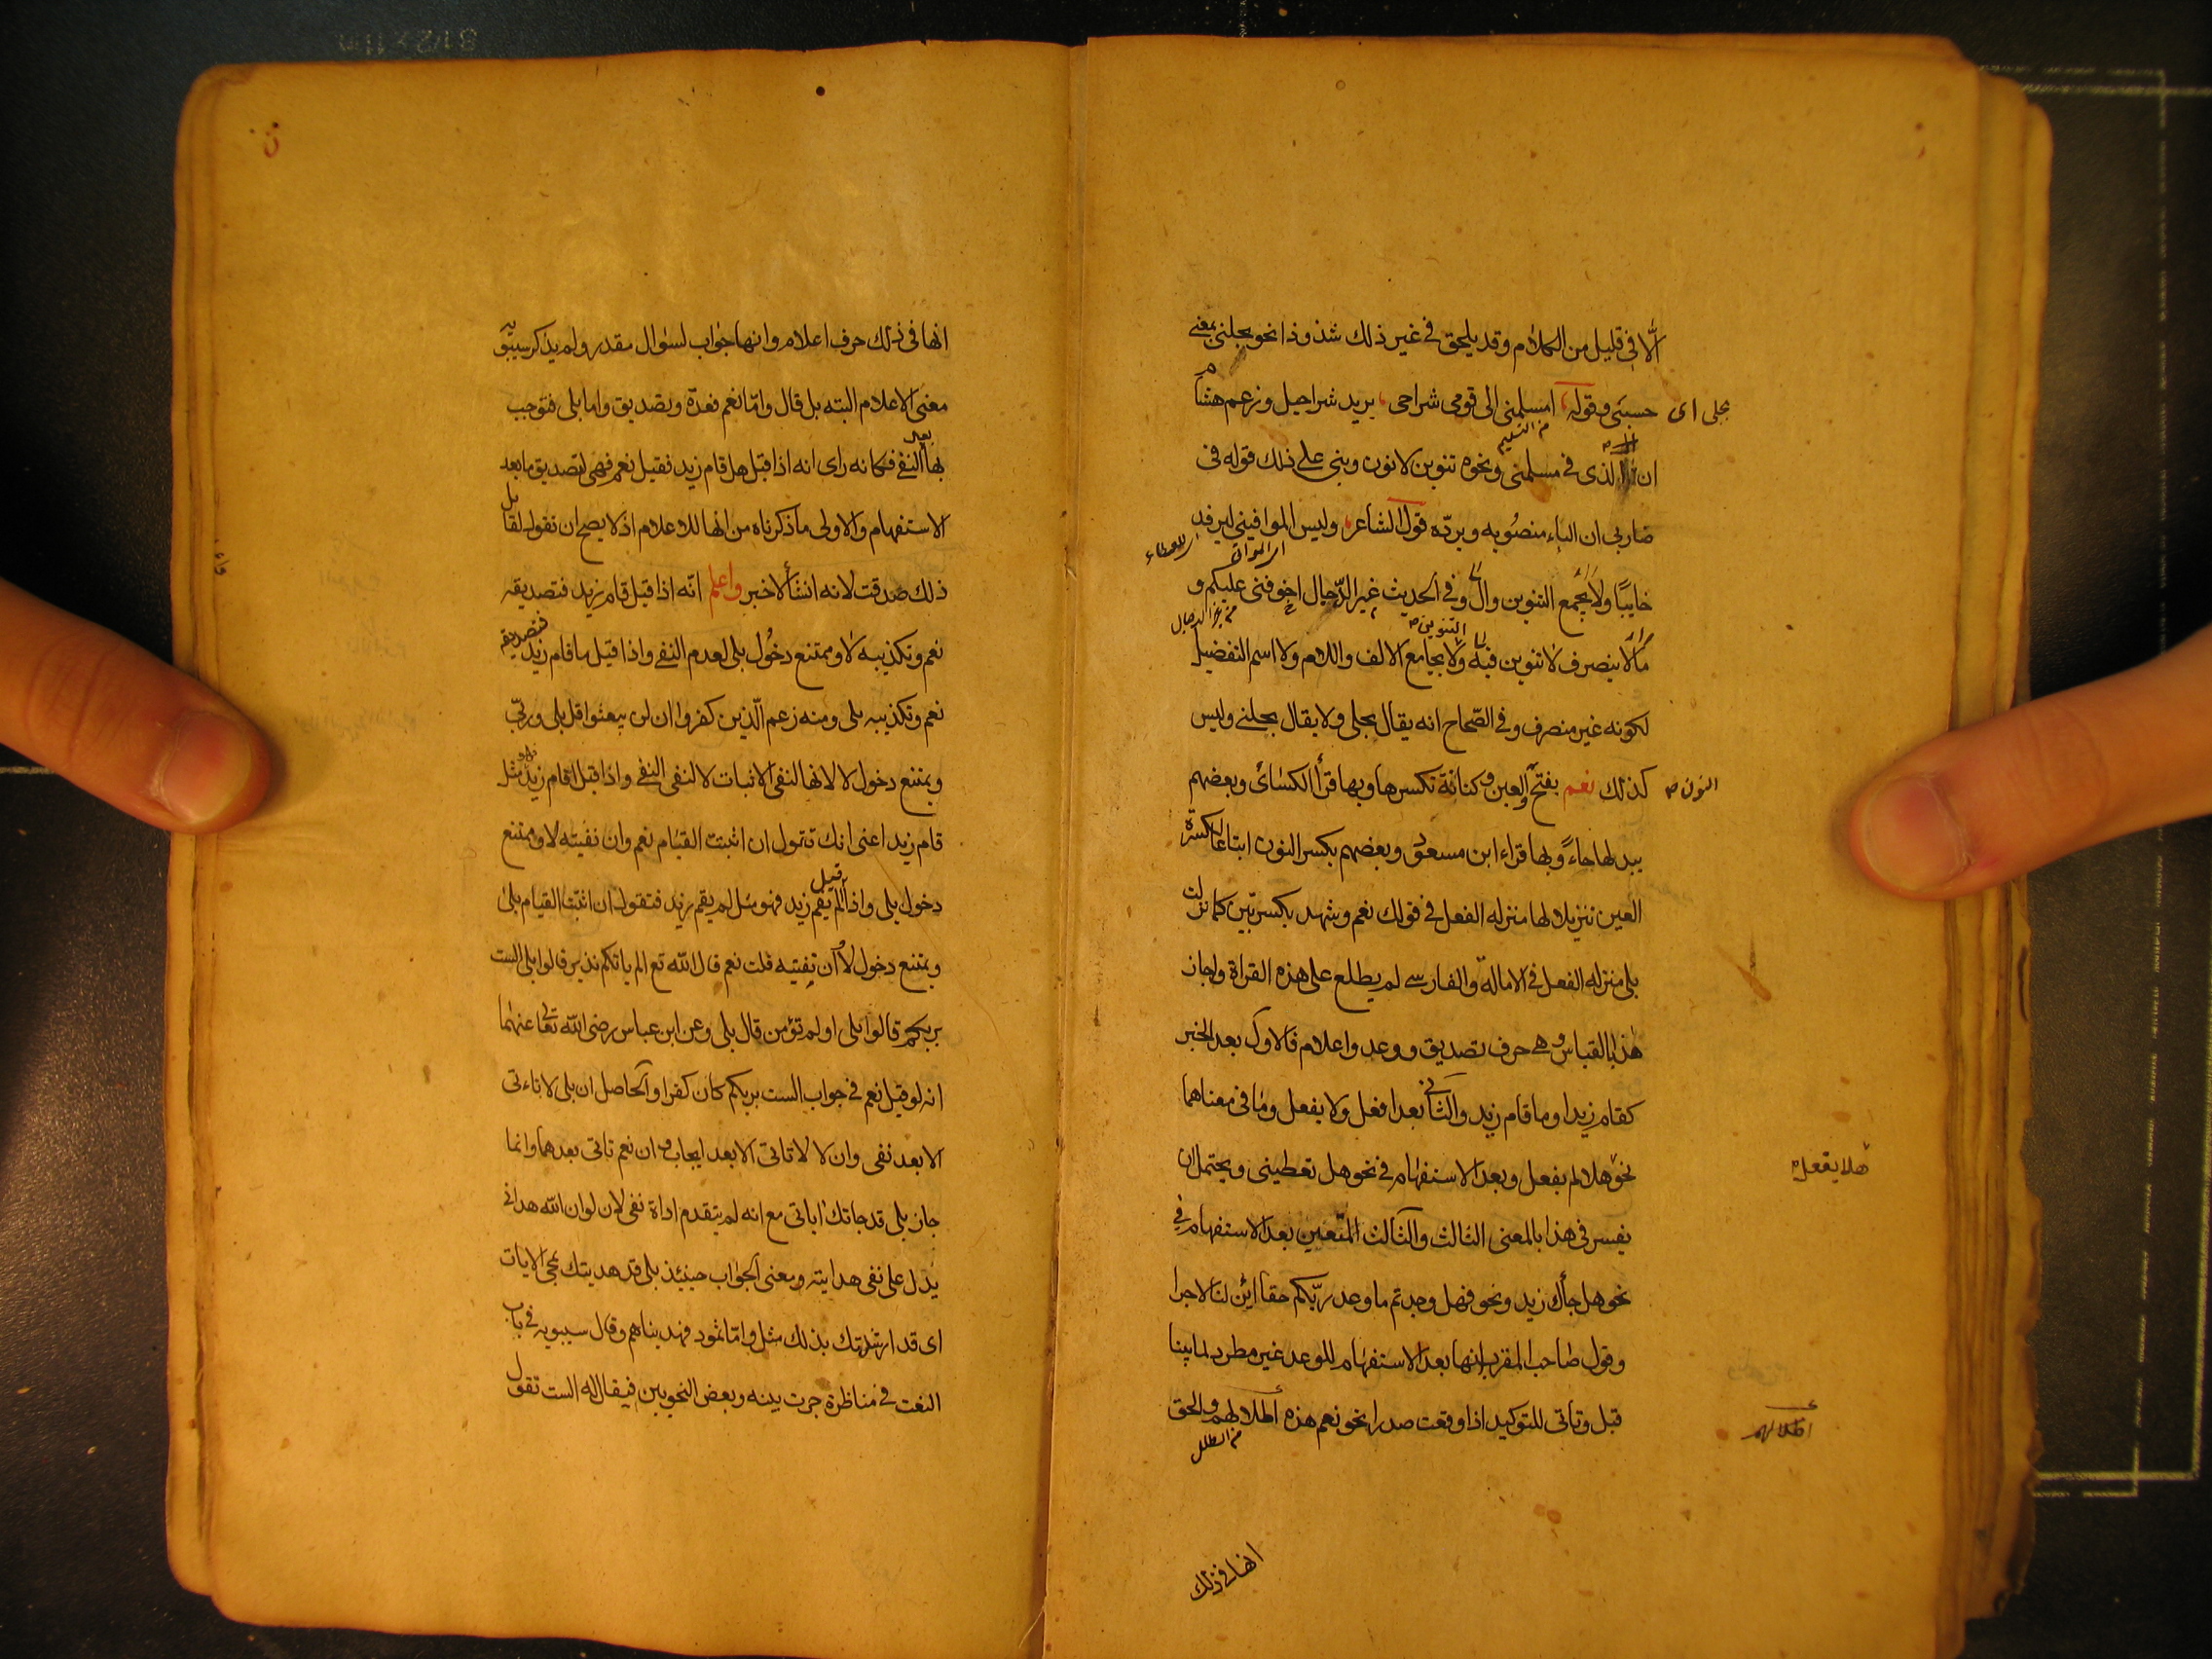 الّا فی قلیل من الکلام وقد یلحق فی غیر ذلك شذوذا نحو بجلنی بمعنی
حسبی وقوله امسلمنی الی قومی شراحی یرید شراحیل وزعم هشام
بجلی ای
ان الذی فی مسلمنی ونحوه تنوین لا نون وبنی علی ذلك قوله فی
من التسلیم
ضاربی ان الیاء منصوبه ویردّه قول الشاعر ولیس الموافینی لیرفد
خایبًا ولا یجمع التنوین وال وفی الحدیث غیر الدّجال اخوفنی علیکم و
ما لا ینصرف لا تنوین فیه ولا یجامع الالف واللام ولا اسم التفضیل
التنوین
لکونه غیر منصرف وفی الصّحاح انه یقال بجلی ولا یقال بجلنی ولیس
کذلك نعم بفتح العین وکنانة تکسرها وبها قرأ الکسائی وبعضهم
النون
یبدلها حاء وبها قراء ابن مسعود وبعضهم یکسر النون اتباعا لکسرة
العین تنزیلا لها منزله الفعل فی قولك نعم وشهد بکسرتین کما نزلت
بلی منزله الفعل فی الاماله والفارسی لم یطلع علی هذه القراة واجاز
هذا بالقیاس وهی حرف تصدیق ووعد واعلام فالاول بعد الخبر
کقام زید او ما قام زید والثانی بعد افعل ولا یفعل وما فی معناهما
نحو هلا لم یفعل وبعد الاستفهام فی نحو هل تعطینی ویحتمل ان
هلا یفعل
یفسر فی هذا بالمعنی الثالث والثالث المتعین بعد الاستفهام فی
نحو هل جأك زید ونحو فهل وجدتم ما وعد ربّکم حقا ائن لنا لاجرا
وقول صاحب المقرب انها بعد الاستفهام للوعد غیر مطرد لما بینا
قبل وتاتی للتوکید اذا وقعت صدرا نحو نعم هذه اطلالهم والحق
اطلالهم
من الطلل
انها فی ذلك
انها فی ذلك حرف اعلام وانها جواب لسؤال مقدر ولم یذکر سیبویه
معنی الاعلام البته بل قال وامّا نعم فعدة وتصدیق واما بلی فتوجب
بها بعد النفی فکانه رای انه اذا قیل هل قام زید فقیل نعم فهی لتصدیق ما بعد
الاستفهام والاولی ما ذکرناه من انها للاعلام اذ لا یصح ان تقول لقائل
ذلك صدقت لانه انشأ لا خبر واعلم انّه اذا قیل قام زید فتصدیقه
نعم وتکذیبه لا ویمتنع دخول بلی لعدم النفی واذا قیل ما قام زید فتصدیقه
نعم وتکذیبه بلی ومنه زعم الّذین کفروا ان لن یبعثوا قل بلی وربّی
ویمتنع دخول لا لانها لنفی الاثبات لا لنفی النفی واذا قیل اقام زید فهو مثل
قام زید اعنی انك تقول ان اثبت القیام نعم وان نفیته لا ویمتنع
دخول بلی واذا قیل الم یقم زید فهو مثل لم یقم زید فتقول ان اثبت القیام بلی
ویمتنع دخول لا وان نفیته قلت نعم قال الله تع الم یاتکم نذیر قالوا بلی الست
بربکم قالوا بلی اولم تؤمن قال بلی وعن ابن عباس رضی الله تعالی عنهما
انه لو قیل نعم فی جواب الست بربکم کان کفرا والحاصل ان بلی لا تاءتی
الا بعد نفی وان لا لا تاتی الا بعد ایجاب وان نعم تاتی بعدهما وانما
جاز بلی قد جاتك ایاتی مع انه لم یتقدم اداة نفی لان لو ان الله هدانی
یدل علی نفی هدایته ومعنی الجواب حینئذ بلی قد هدیتك بمجی الایات
ای قد ارشدتك بذلك مثل واما ثمود فهدیناهم وقال سیبویه فی باب
النعت فی مناظرة جرت بینه وبعض النحویین فیقال له الست تقول